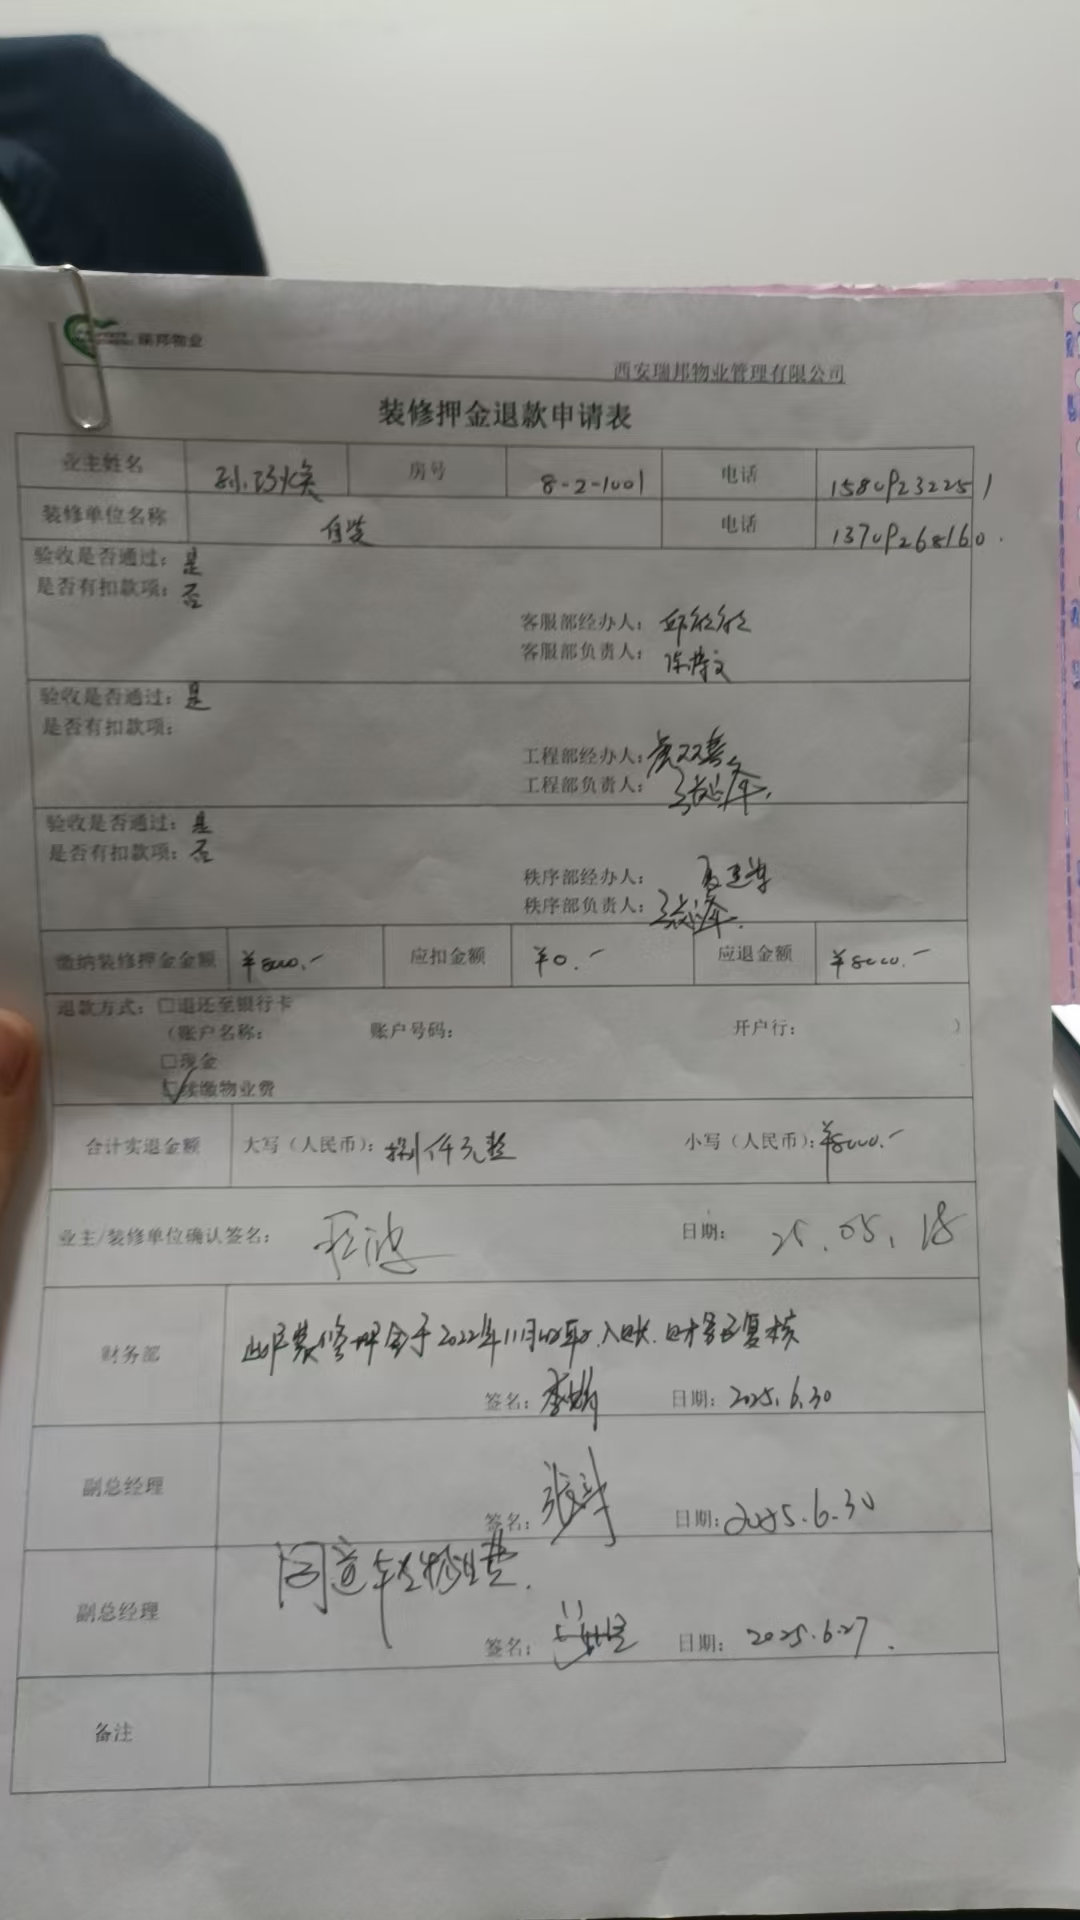 瑞邦物业
西安瑞邦物业管理有限公司
装修押金退款申请表
业主姓名 孙巧焕 房号 8-2-1001 电话 15809232251
装修单位名称 自装 电话 13709268160.
验收是否通过：是
是否有扣款项：否
客服部经办人：
客服部负责人：
验收是否通过：是
是否有扣款项：
工程部经办人：
工程部负责人：
验收是否通过：是
是否有扣款项：否
秩序部经办人：
秩序部负责人：
缴纳装修押金金额 ¥8000.- 应扣金额 ¥0.- 应退金额 ¥8000.-
退款方式：□退还至银行卡
（账户名称： 账户号码： 开户行： ）
□现金
□续缴物业费
合计实退金额 大写（人民币）：捌仟元整 小写（人民币）：¥8000.-
业主/装修单位确认签名： 日期： 25.05.18
财务部 此户装修押金于2022年11月 入账.财务已复核
签名： 日期：2025.6.30
副总经理
签名： 日期：2025.6.30
副总经理 物业费.
签名： 日期： 2025.6.27.
备注